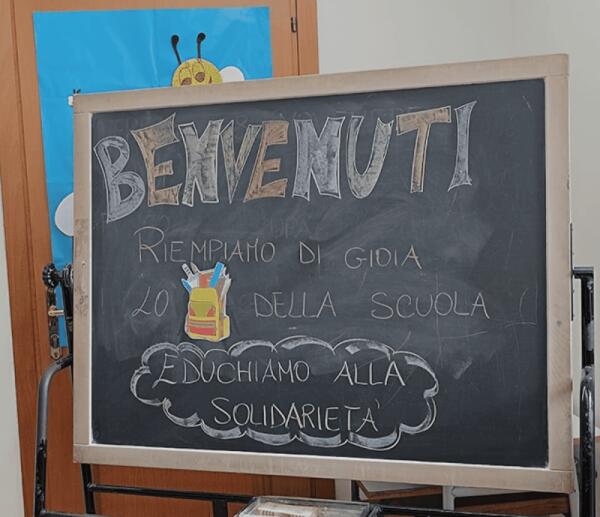 BENVENUTI
RIEMPIAMO DI GIOIA
LO DELLA SCUOLA
EDUCHIAMO ALLA
SOLIDARIETÀ